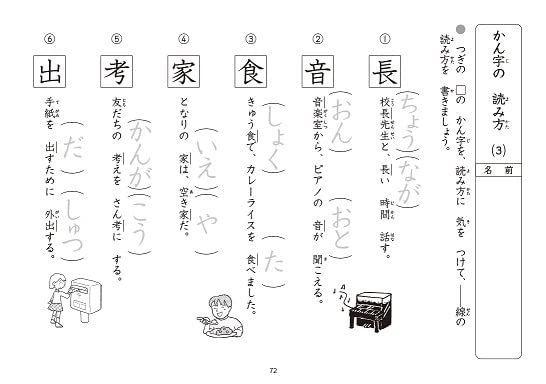 かん字の 読み方 (3)
名前
● つぎの □の かん字を、読み方に 気を つけて、――線の
読み方を 書きましょう。
① 長
(ちょう)(なが)
校長先生と、長い 時間 話す。
② 音
(おん)(おと)
音楽室から、ピアノの 音が 聞こえる。
③ 食
(しょく)(た)
きゅう食で、カレーライスを 食べました。
④ 家
(いえ)(や)
となりの 家は、空き家だ。
⑤ 考
(かんが)(こう)
友だちの 考えを さん考に する。
⑥ 出
(だ)(しゅつ)
手紙を 出すために 外出する。
72